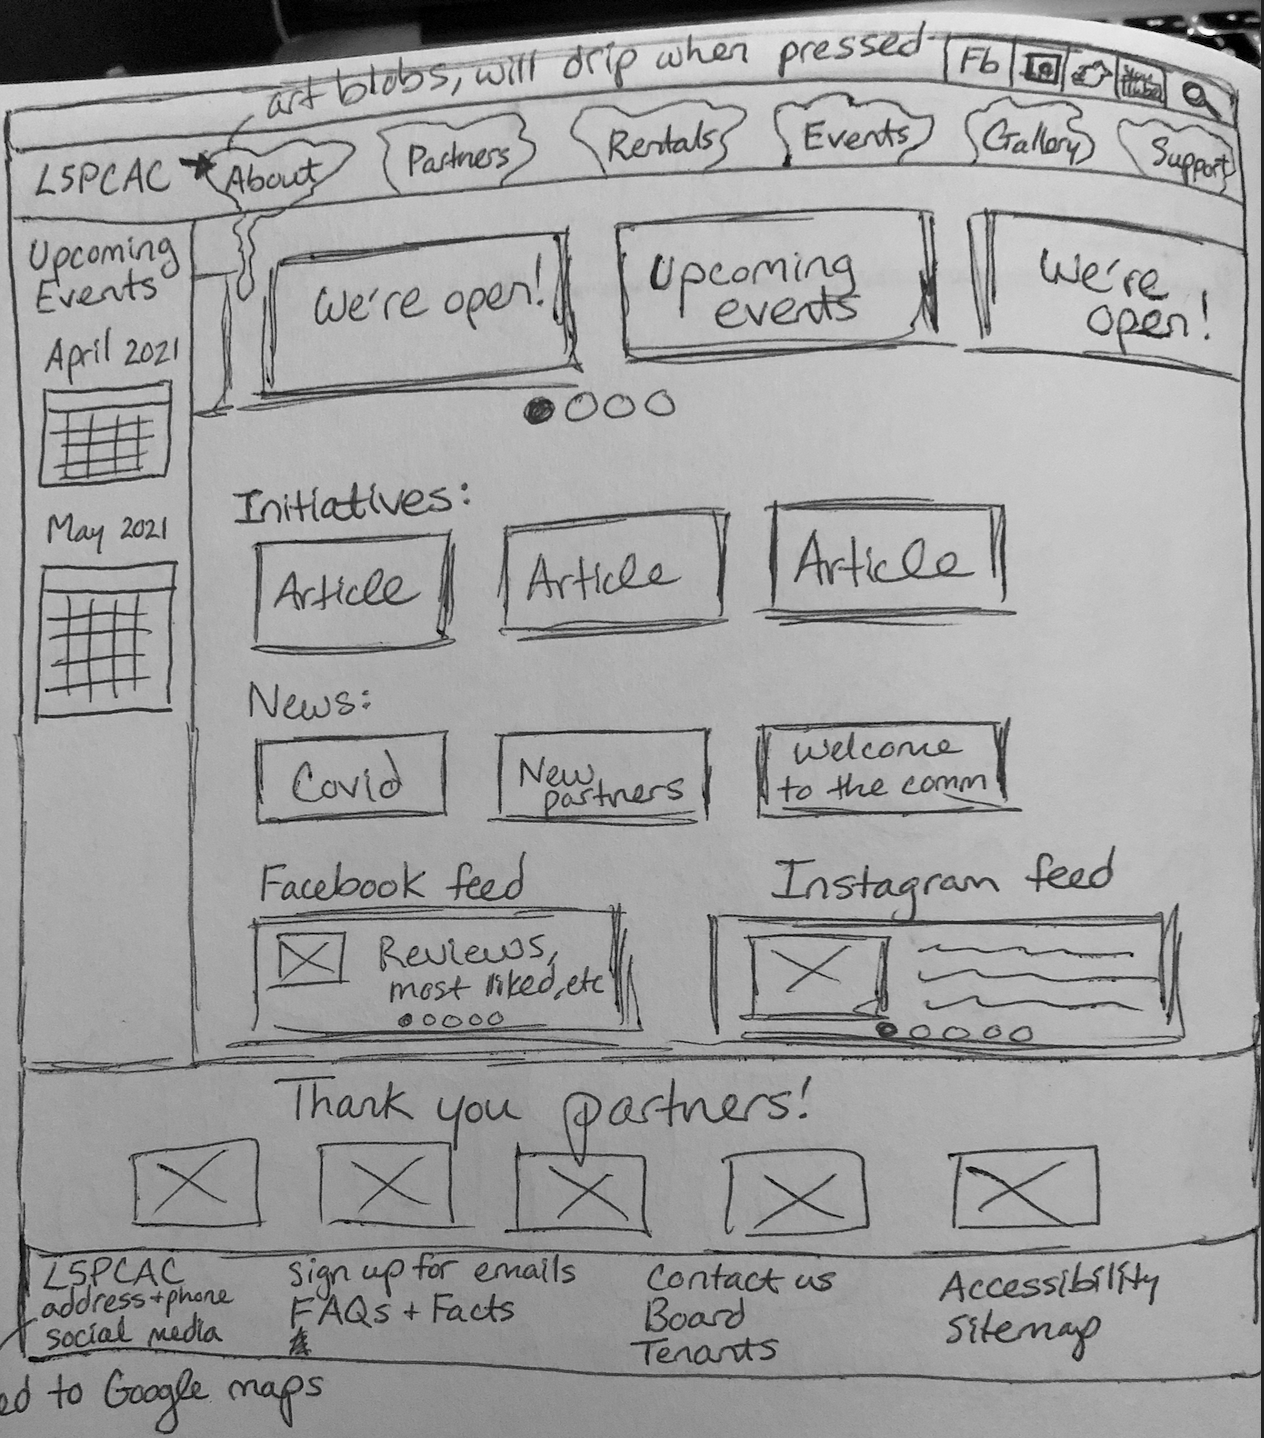 art blobs, will drip when pressed
Fb
You Tube
LSPCAC
About
Partners
Rentals
Events
Gallery
Support
Upcoming
Events
April 2021
May 2021
We're open!
Upcoming
events
We're
open!
Initiatives:
Article
Article
Article
News:
Covid
New
partners
Welcome
to the comm
Facebook feed
Reviews,
most liked, etc
Instagram feed
Thank you partners!
LSPCAC
address + phone
social media
Sign up for emails
FAQs + Facts
Contact us
Board
Tenants
Accessibility
Sitemap
ed to Google maps